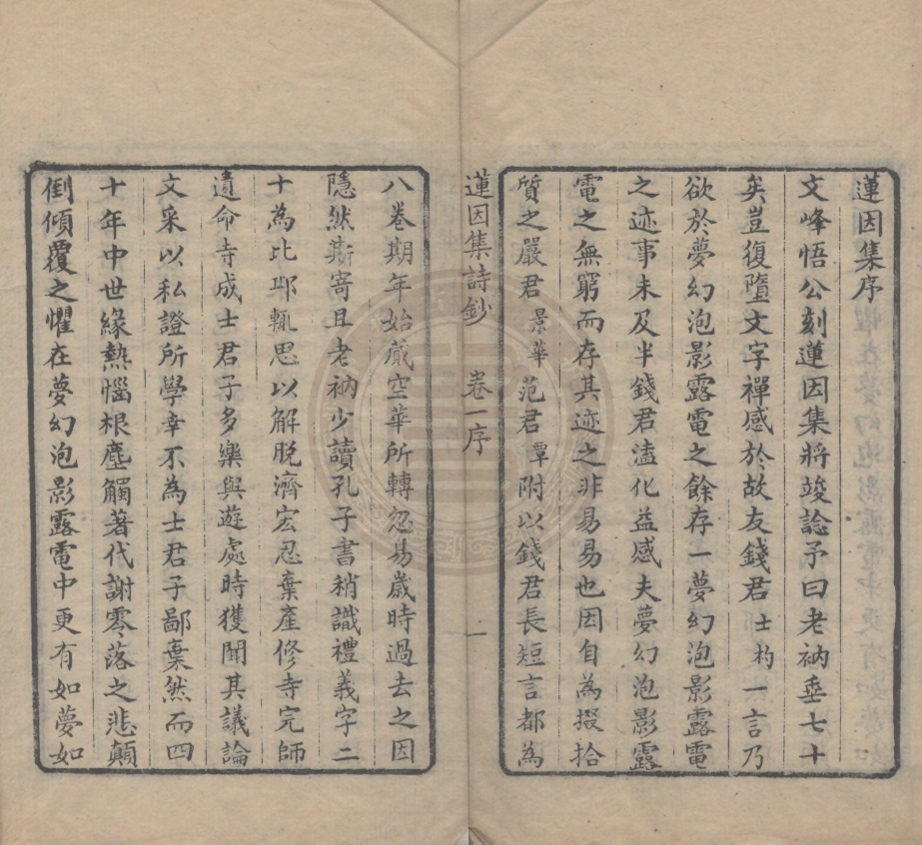 蓮因集序
文峰悟公刻蓮因集將竣諗予曰老衲垂七十
矣豈復墮文字禪感於故友錢君士杓一言乃
欲於夢幻泡影露電之餘存一夢幻泡影露電
之迹事未及半錢君溘化益感夫夢幻泡影露
電之無窮而存其迹之非易易也因自為掇拾
質之嚴君景華范君覃附以錢君長短言都為
蓮因集詩鈔 卷一序 一
八卷期年始蕆空華所轉忽易歲時過去之因
隱然斯寄且老衲少讀孔子書稍識禮義字二
十為比邱輒思以解脫濟宏忍棄產修寺完師
遺命寺成士君子多樂與遊處時獲聞其議論
文采以私證所學幸不為士君子鄙棄然而四
十年中世緣熱惱根塵觸著代謝零落之悲顛
倒傾覆之懼在夢幻泡影露電中更有如夢如